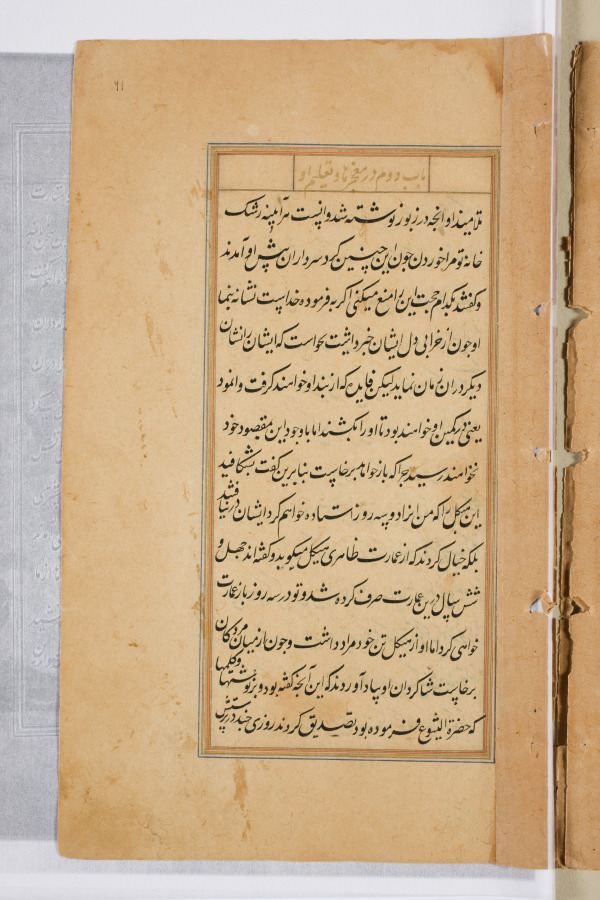 ۶۱
باب دوم در معجزها و تعلیم او
تلامیذ او انچه در زبور نوشته شد و اپنست هر آیینه رشک
خانه تو مرا خوردن چون این چنین کرد سرداران پیش او آمدند
و کفتند بکدام حجت این را منع میکنی اکر به فرموده خداست نشانه بنما
او چون از خرابی دل ایشان خبر داشت نخواست که ایشان را نشان
دیکر در ان زمان نماید لیکن فایده که از بند او خواهند کرفت وانمود
یعنی در کمین او خواهند بود تا او را بکشند اما باوجود این مقصود خود
نخواهند رسید چرا که باز خواهد برخاست بنابرین کفت بشکافید
این هیکل را که من انرا در سه روز استاده خواهم کرد ایشان در نیافتند
بلکه خیال کردند که از عمارت ظاهری هیکل میکوید و کفتند چهل و
شش سال درین عمارت صرف کرده شد و تو در سه روز باز عمارت
خواهی کرد اما او از هیکل تن خود مراد داشت و چون از میان مردکان
برخاست شاکردان او بیاد آوردند که این آنچه کفته بود و بر نوشتها و کلمها
که حضرة ایشوع فرموده بود تصدیق کردند روزی چند در پرستش